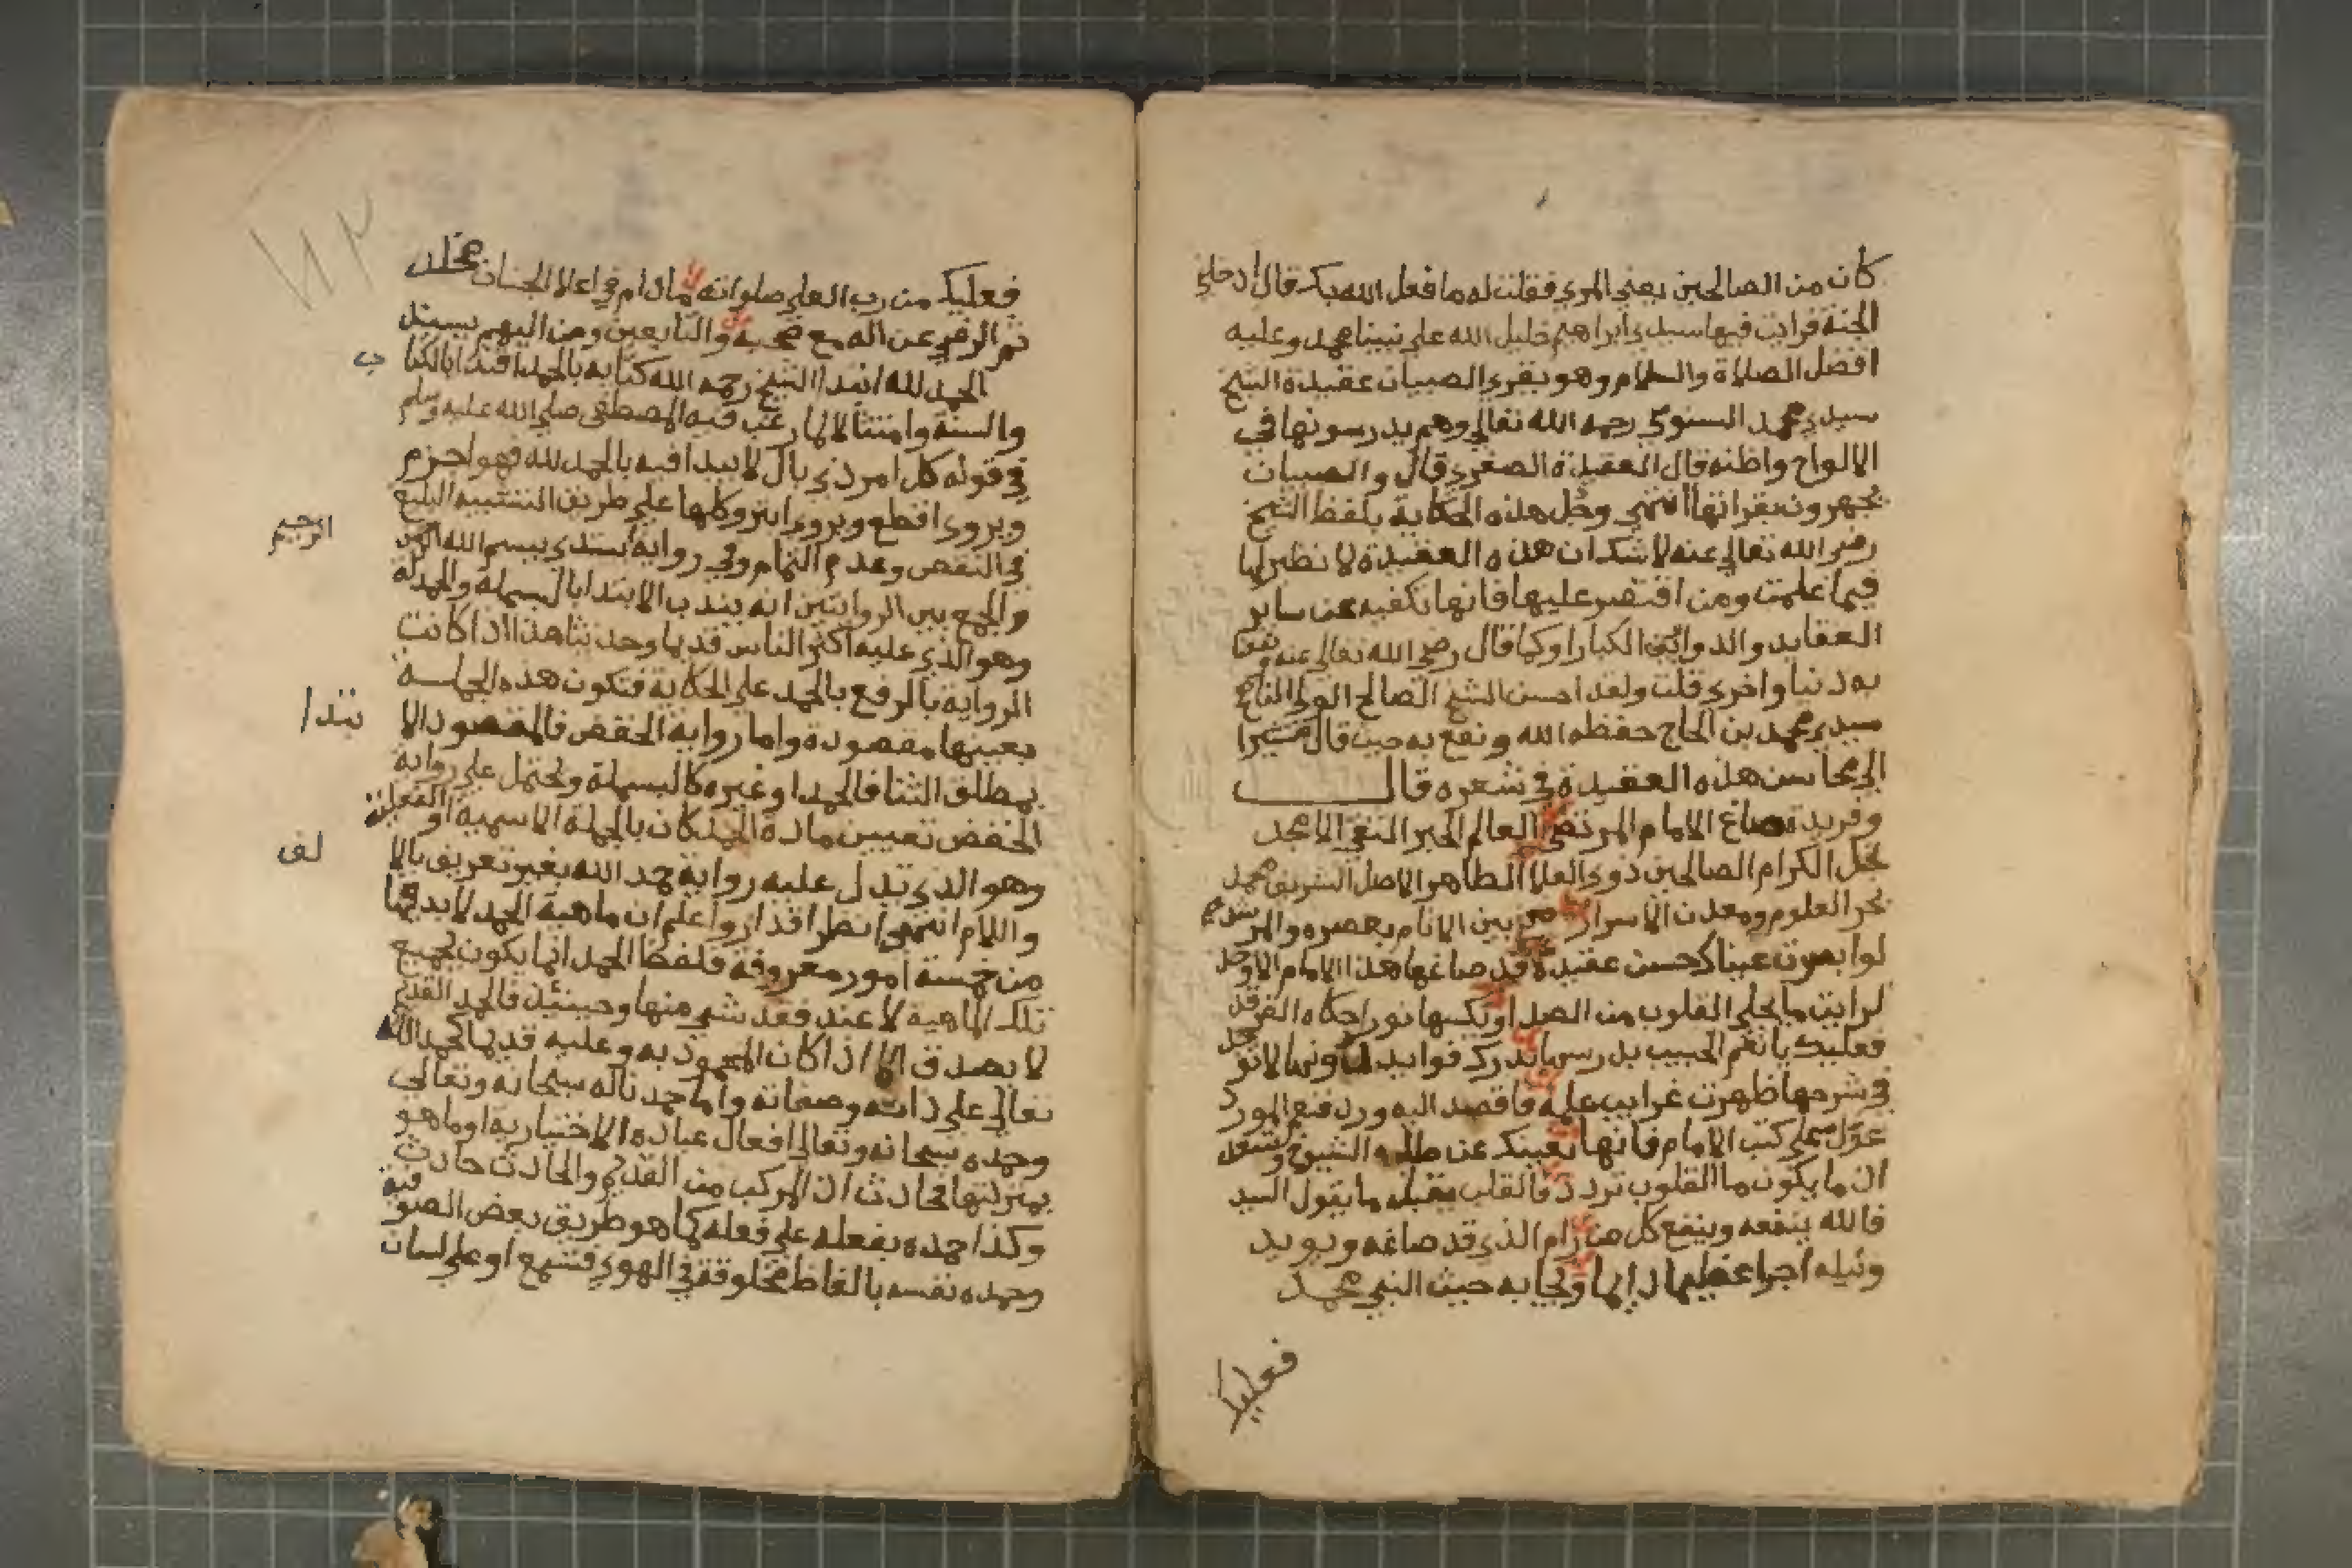 كان من الصالحين يعني المري فقلت له ما فعل الله بك قال ادخلني
الجنة فرايت فيها سيدي ابراهيم خليل الله على نبينا محمد وعليه
افضل الصلاة والسلام وهو يقرئ الصبيان عقيدة الشيخ
سيدي محمد السنوسي رحمه الله تعالى وهم يدرسونها في
الالواح واظنه قال العقيدة الصغرى قال والصبيان
يجهرون بقراتها انتهى وجل هذه الحكاية بلفظ الشيخ
رضي الله تعالى عنه لا شك ان هذه العقيدة لا نظير لها
فيما علمت ومن اقتصر عليها فانها تكفيه عن ساير
العقايد والدواوين الكبار او كما قال رضي الله تعالى عنه ونفعنا
به دنيا واخرى قلت ولقد احسن الشيخ الصالح الولي
سيدي محمد بن الحاج حفظه الله ونفع به حيث قال مشيرا
الى محاسن هذه العقيدة في شعره قال
وفريدة صاغ الامام المرتضى العالم الحبر التقي الامجد
نجل الكرام الصالحين ذوي العلا الطاهر الاصل الشريف محمد
بحر العلوم ومعدن الاسرار من بين الانام بعصره والمرشد
لو ابصرت عيناك حسن عقيدة قد صاغها هذا الامام الاوحد
لرايت ما يجلي القلوب من الصدا ويكسبها نورا حكاه الفرقد
فعليك يا نعم الحبيب بدرسها تدرك فوايد لا توجد
في شرحها ظهرت غرايب علمه فاقصد اليه ورد فنعم المورد
عول على كتب الامام فانها تغنيك عن طلب الشيوخ
ان ما يكون ما القلوب تردد فالقلب يقبل ما يقول السيد
فالله ينفعه وينفع كل من رام الذي قد صاغه ويويد
ونيله اجرا عظيما دايما ونجا به حيث النبي محمد
فعليك
فعليك من رب العلى صلواته ما دام في اعلا الجنان مخلد
ثم الرضى عن اله مع صحبه والتابعين ومن اليهم يسند
الحمد لله ابتدا الشيخ رحمه الله كتابه بالحمد اقتدا بالكتا
ب
والسنة وامتثالا لما رغب فيه المصطفى صلى الله عليه وسلم
في قوله كل امر ذي بال لا يبدا فيه بالحمد لله فهو اجزم
ويروى اقطع ويروى ابتر وكلها على طريق التشبيه البليغ
في النقص وعدم التمام وفي رواية ببسم الله الرحمن
الرحيم
والجمع بين الروايتين انه يندب الابتدا بالبسملة والحمدلة
وهو الذي عليه اكثر الناس قديما وحديثا هذا اذا كانت
الرواية بالرفع بالحمد على الحكاية فتكون هذه الجملة
بعينها مقصودة واما رواية الخفض فالمقصود الا
بتدا
بمطلق الثنا فالحمد او غيره كالبسملة ويحتمل على رواية
الخفض تعيين مادة الحمد كان بالجملة الاسمية او الفعلية
وهو الذي تدل عليه رواية حمد الله بغير تعريف بالا
لف
واللام انتهى انظر اقدار واعلم ان ماهية الحمد لا بد فيها
من خمسة امور معروفة فلفظ الحمد انما يكون لجميع
تلك الماهية لا عند فقد شيء منها وحينئذ فالحمد القديم
لا يصدق الا اذا كان المحمود به وعليه قديما كحمد الله
تعالى على ذاته وصفاته واما حمدنا له سبحانه وتعالى
وحمده سبحانه وتعالى افعال عباده الاختيارية او ما هو
بمنزلتها فحادث اذ المركب من القديم والحادث حادث
وكذا حمده بفعله على فعله كما هو طريق بعض الصوفية
وحمده نفسه بالفاظ مخلوقة في الهوى فتسمع او على لسان